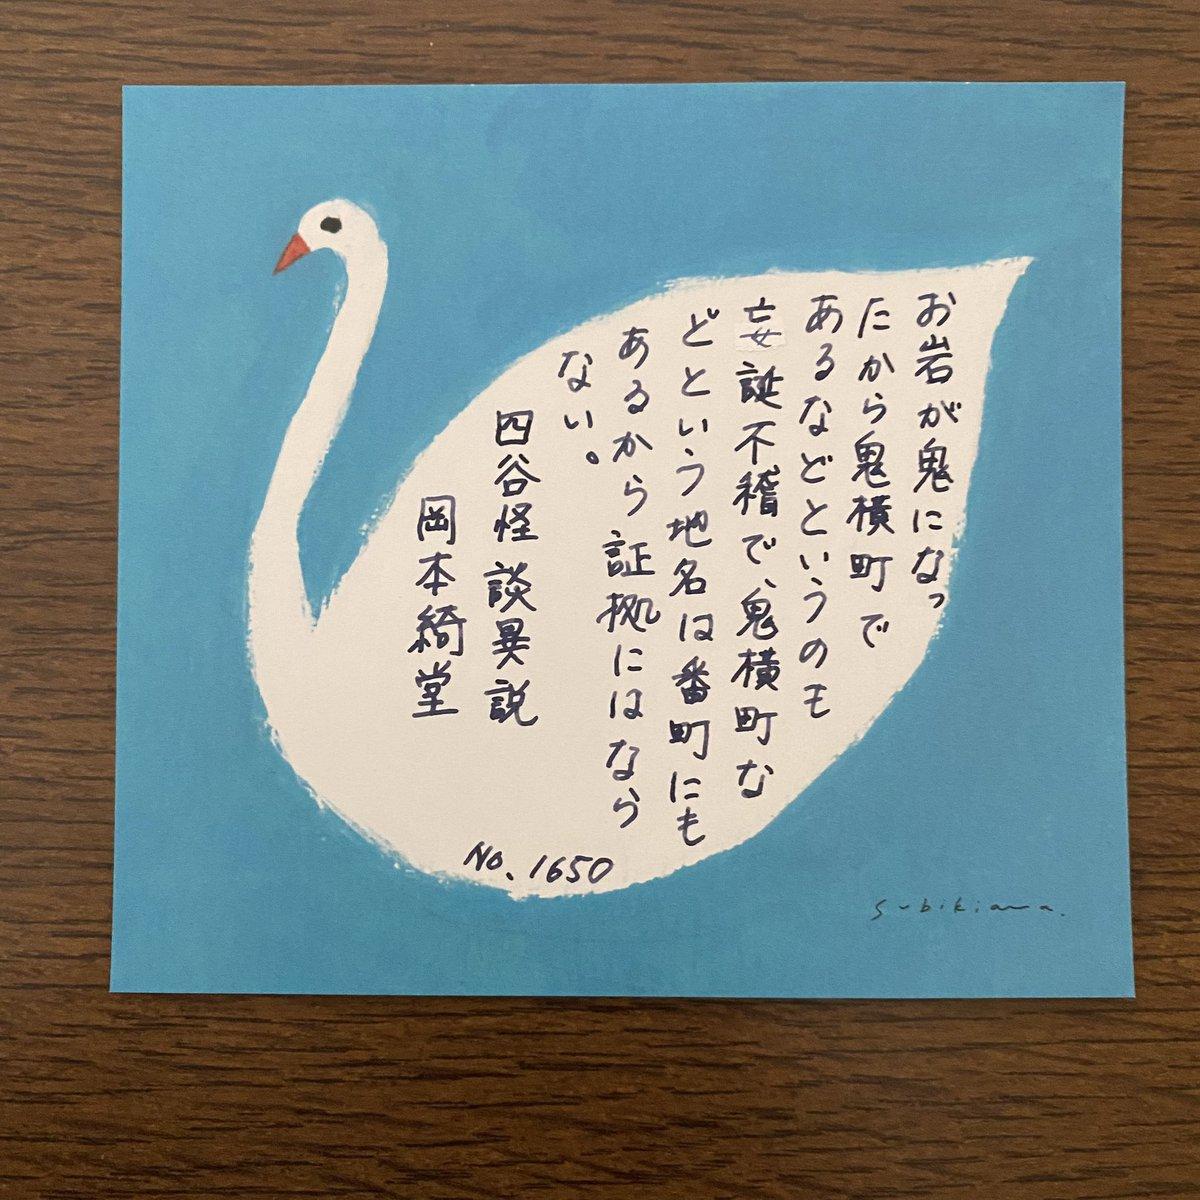 お岩が鬼になっ
たから鬼横町で
あるなどというのも
妄誕不稽で、鬼横町な
どという地名は番町にも
あるから証拠にはなら
ない。
四谷怪談異説
岡本綺堂
No.1650
subikiawa.